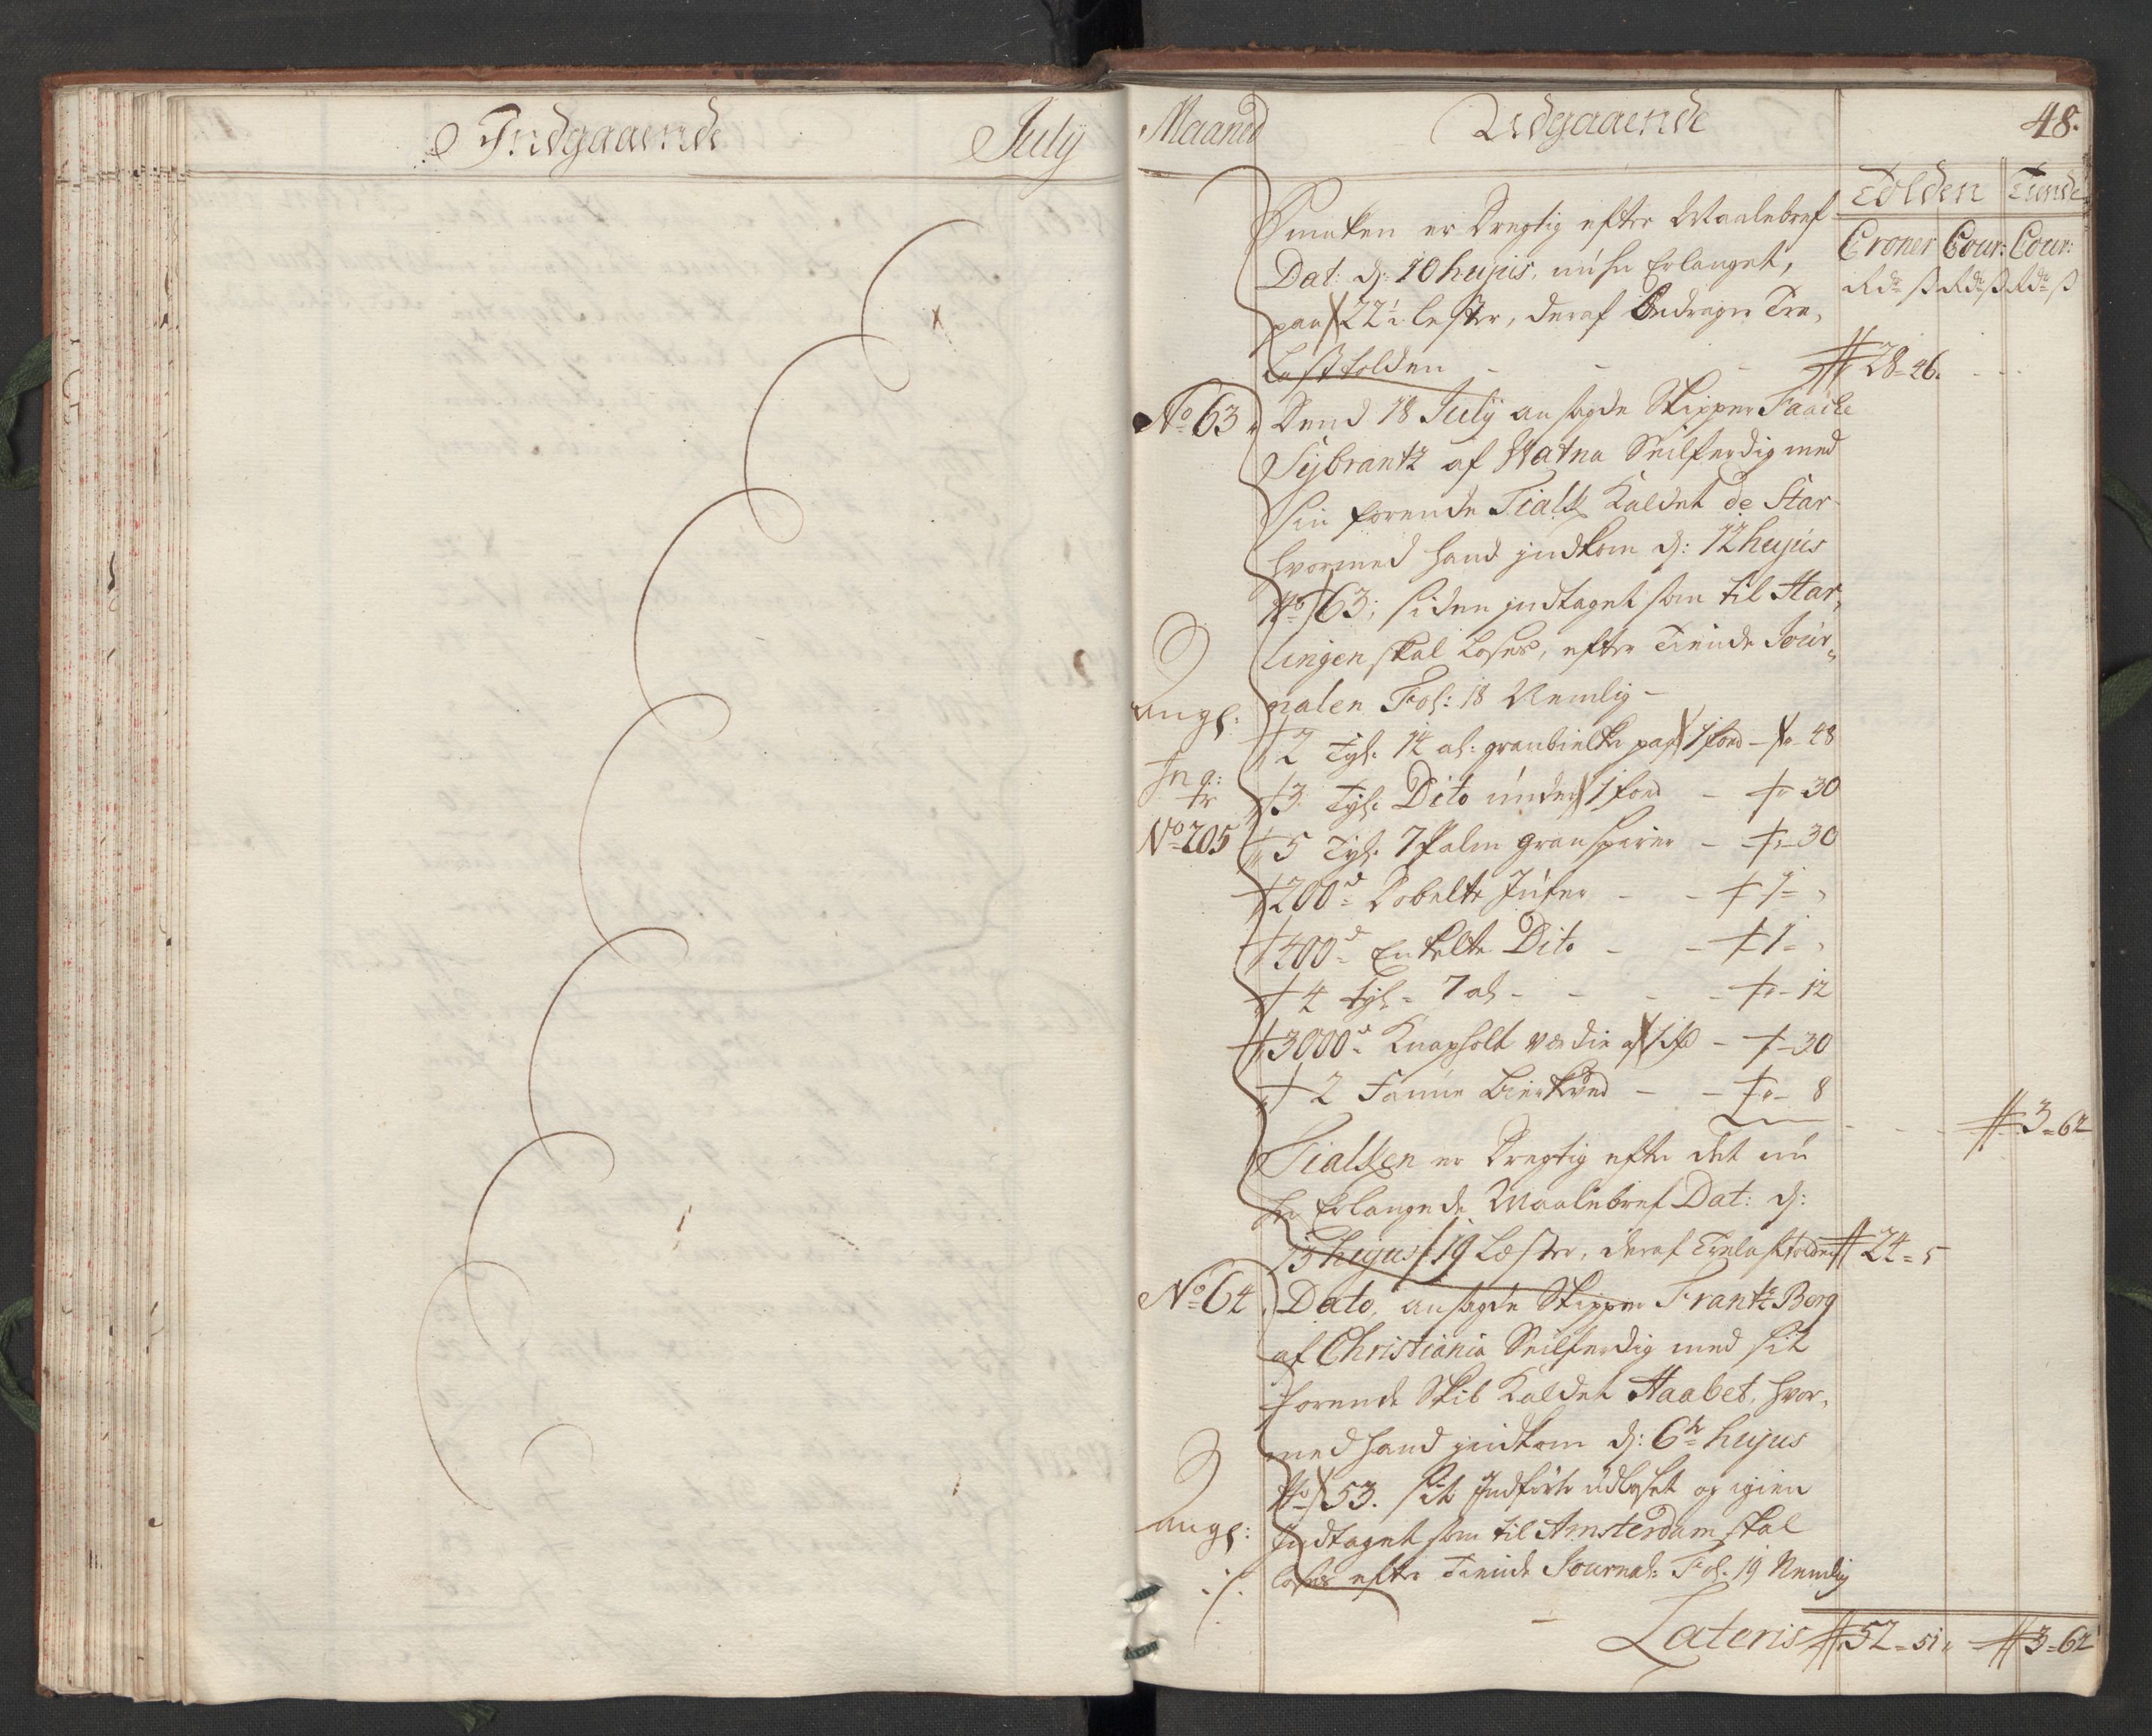 Indgaaende July
Maaned Udgaaende 48.
Tolden Tiende
Croner Cour: Cour:
Rdr ß Rdr ß Rdr ß
Smaken er Dregtig efter Maalebref
Dat: d: 10 hujus, nu her Erlanget,
paa 22½ lester, deraf bedrager Tre,
Lasttolden - - # 28-46.
No 63. Dend 18 July ansagde Skipper Faacke
Sybrantz af Statna Seilferdig med
sin førende Tialk Kaldet de Star
hvormed hand indkom d: 12 hujus
No 63; siden indtaget som til Har,
lingen skal Loses, efter Tiende Jour,,
nalen Fol: 18 Nemlig -
angf:
2 Tyl: 14 al: granbielker paa 1 fod - " - 48
3 Tyl: Dito under 1 fod - " - 30
No 205
5 Tyl: 7 Palm gran sparer - " - 30
200d Dobelte Jufer - - 1 - "
400d Enkelte Dito - - 1 - "
4 Tyl: 7 al - - - " - 12
3000d Knapholt - " - 30
2 Fanne Birkved - - " - 8
# 3-62
Tialken er Dregtig efter det nu
her Erlangede Maalebref Dat: d:
13 hujus 19 Lester, deraf Trelasttolden # 24=5
No 64. Dato, ansagde Skipper Frantz Berg
af Christiania Seilferdig med sit
førende Skib Kaldet Haabet, hvor,
med hand indkom d: 6te hujus
No 53. sit Indførte udloset og igien
angf:
Indtaget som til Amsterdam skal
loses efter Tiende Journal: Fol: 19 Nemlig
Lateris # 52-51 " # 3-62